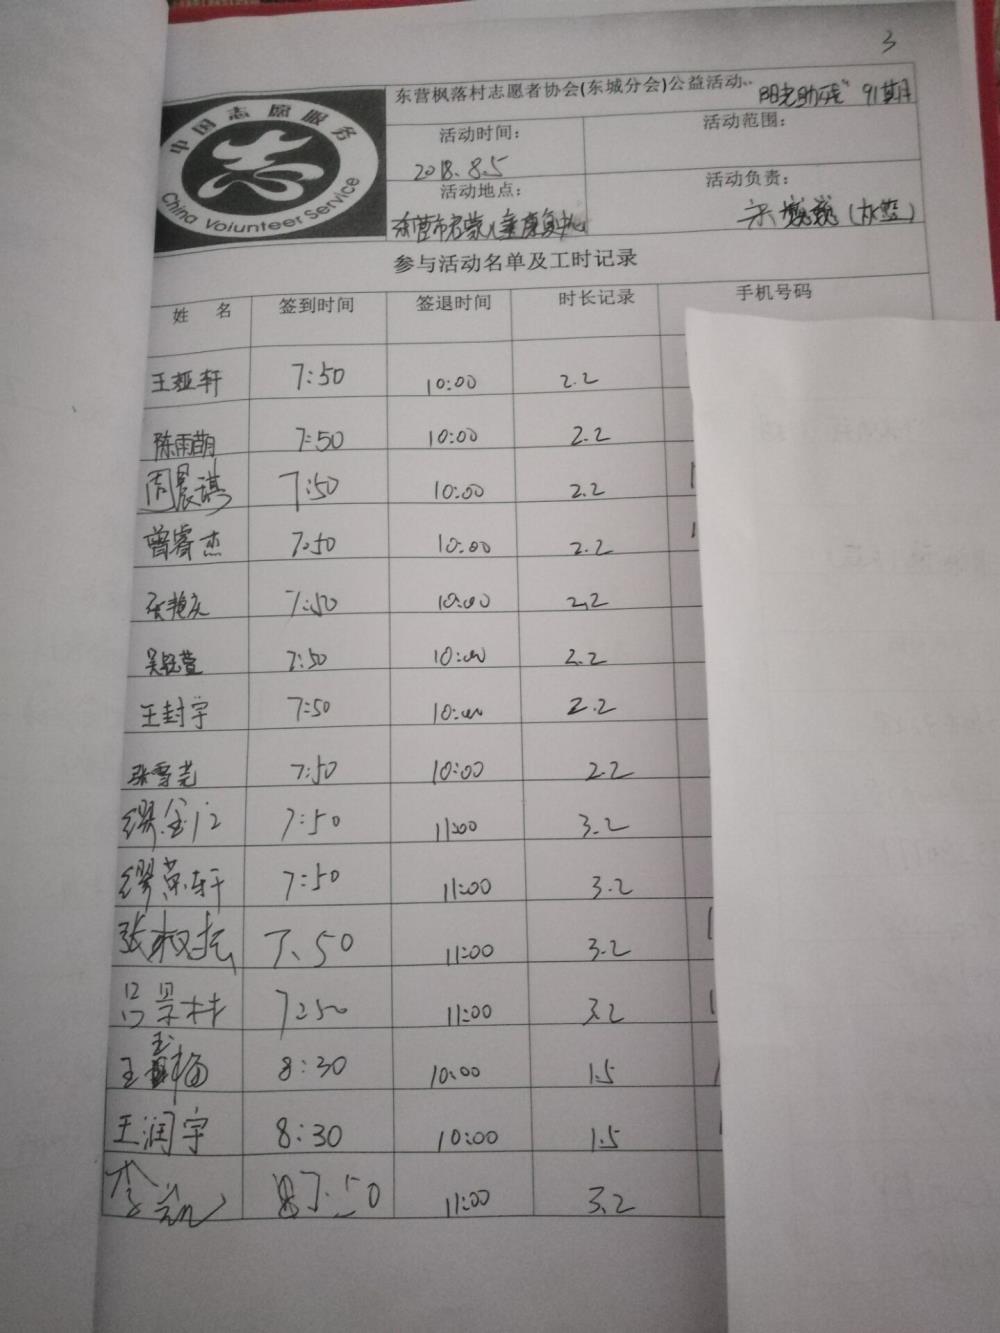 3
中国志愿服务
China Volunteer Service
东营枫落村志愿者协会(东城分会)公益活动 "阳光助残" 91期
活动时间: 活动范围:
2018.8.5
活动地点: 活动负责:
东营市启蒙儿童康复中心
参与活动名单及工时记录
姓 名 签到时间 签退时间 时长记录 手机号码
王娅轩 7:50 10:00 2.2
陈雨萌 7:50 10:00 2.2
周晨琪 7:50 10:00 2.2
曾睿杰 7:50 10:00 2.2
7:50 10:00 2.2
7:50 10:00 2.2
王封宇 7:50 10:00 2.2
张雪莞 7:50 10:00 2.2
7:50 11:00 3.2
缪荣轩 7:50 11:00 3.2
7.50 11:00 3.2
吕景林 7:50 11:00 3.2
8:30 10:00 1.5
王润宇 8:30 10:00 1.5
7:50 11:00 3.2